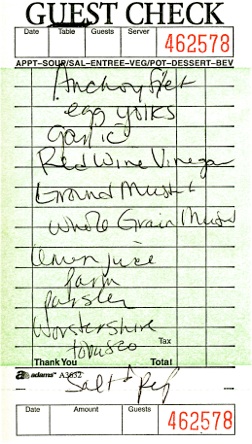 GUEST CHECK
Date Table Guests Server
462578
APPT-SOUP/SAL-ENTREE-VEG/POT-DESSERT-BEV
Anchovy filet
egg yolks
Garlic
Red Wine Vinegar
Ground Mustard
Whole Grain Mustard
Lemon juice
parm
parsley
Worstershire
Tax
tobasco
Thank You Total
adams A3632
Salt & Pep
Date Amount Guests
462578